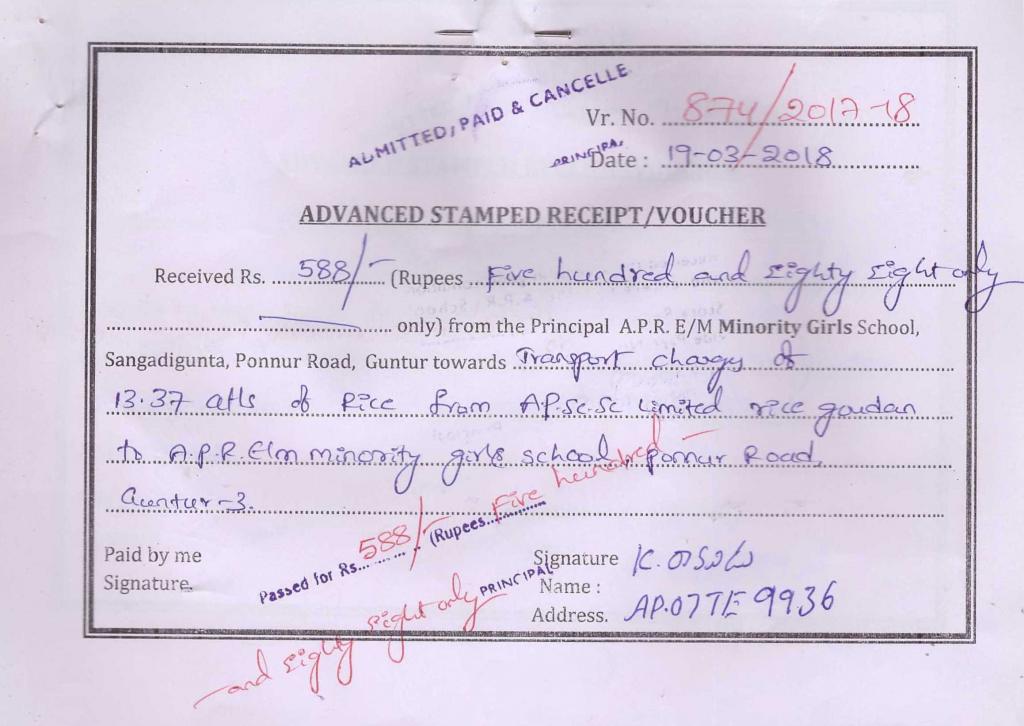 ADMITTED, PAID & CANCELLE
Vr. No. 874/2017-18
PRINCIPA
Date : 19-03-2018
ADVANCED STAMPED RECEIPT/VOUCHER
Received Rs. 588/- (Rupees Five hundred and Eighty Eight only
only) from the Principal A.P.R. E/M Minority Girls School,
Sangadigunta, Ponnur Road, Guntur towards Transport chargy of
13.37 qtls of Rice from A.P.Sc.Sc Limited rice goudan
to A.P.R.E/m minority girls school, ponnur Road,
Guntur-3.
Passed for Rs. 588/- (Rupees Five hundred
and Eighty Eight only
PRINCIPAL
Paid by me
Signature
Signature K.
Name :
Address. AP.07TE 9936